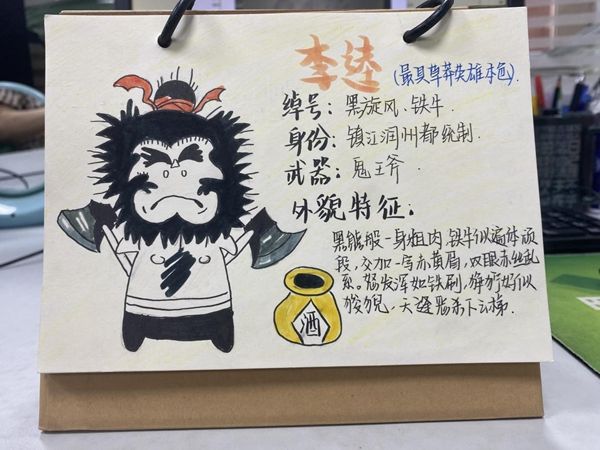 李逵 (最具草莽英雄本色)
绰号：黑旋风、铁牛.
身份：镇江润州都统制.
武器：鬼王斧
外貌特征：
黑熊般一身粗肉,铁牛似遍体顽
段，交加一字赤黄眉，双眼赤丝乱
系。怒发浑如铁刷，狰狞好似
狻猊，天蓬恶杀下云梯.
酒